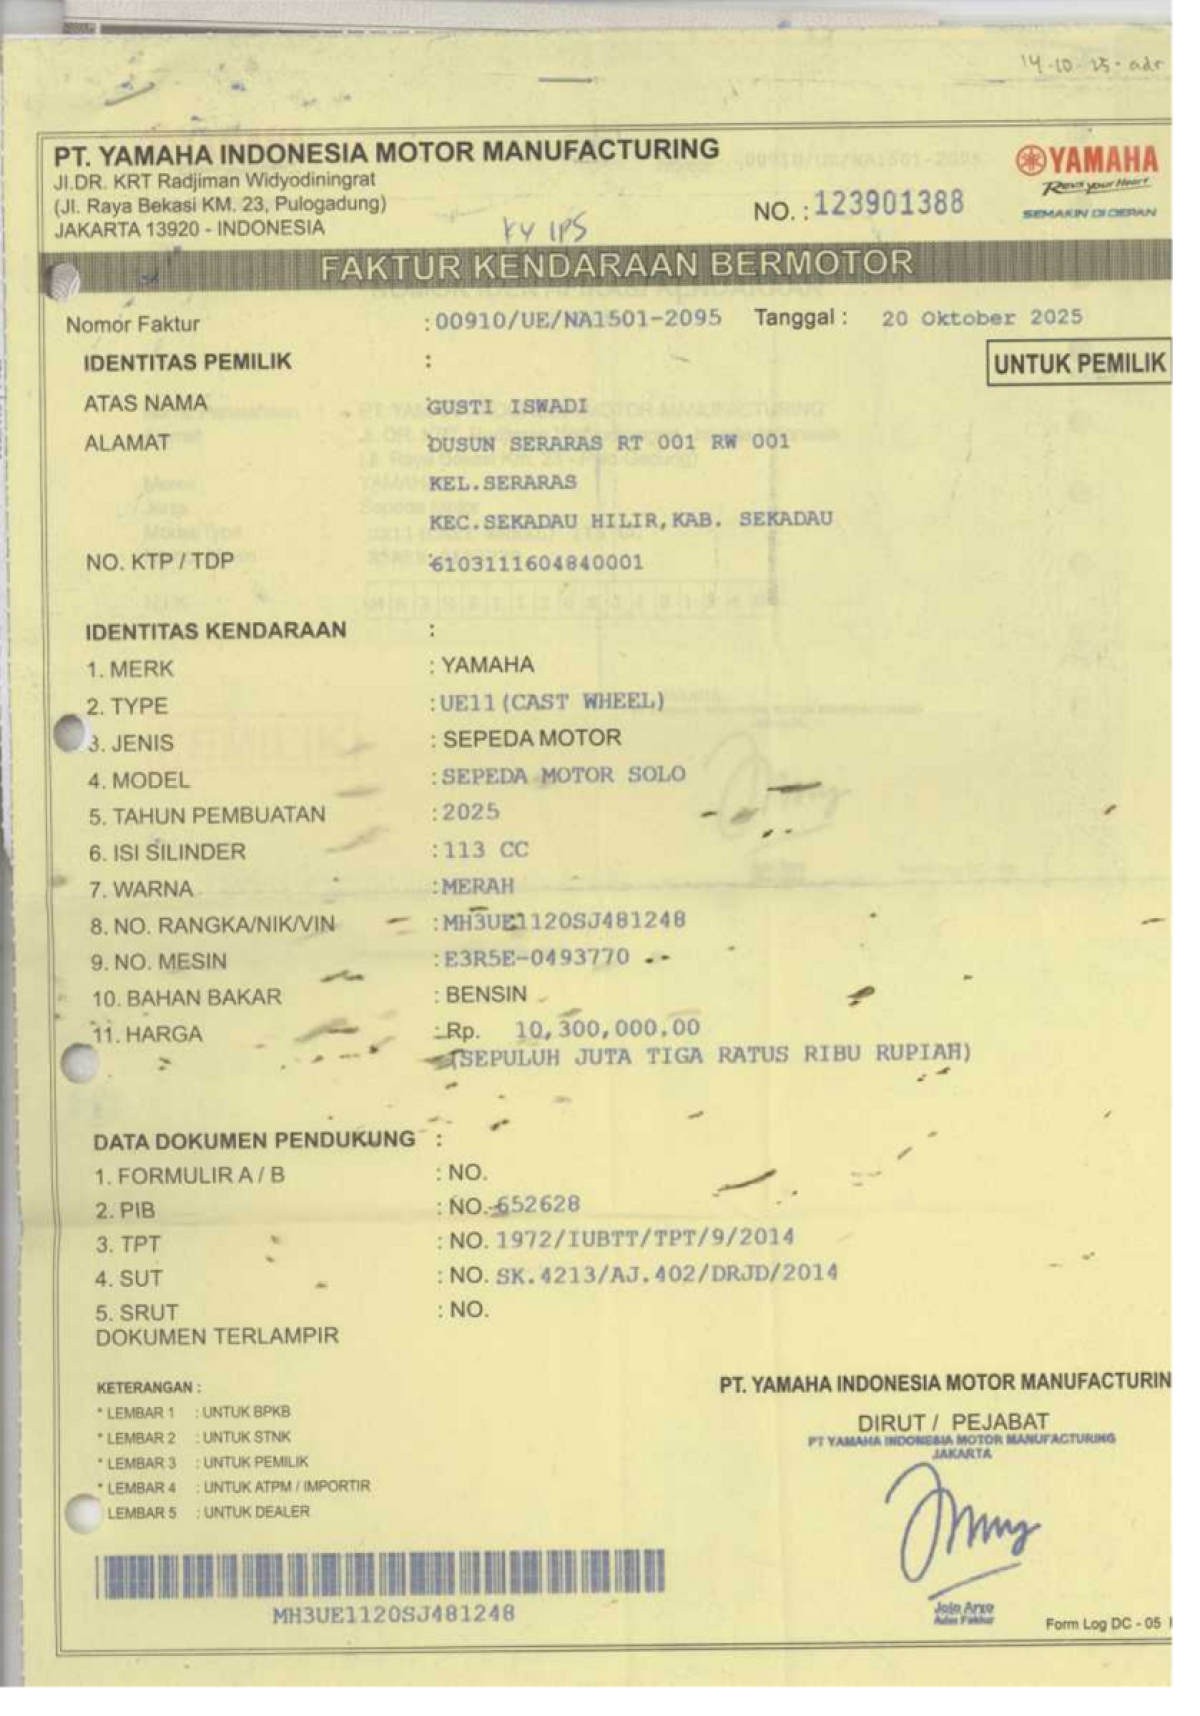 14-10-25-adr
PT. YAMAHA INDONESIA MOTOR MANUFACTURING
Jl.DR. KRT Radjiman Widyodiningrat
(Jl. Raya Bekasi KM. 23, Pulogadung)
JAKARTA 13920 - INDONESIA
YAMAHA
Revs your Heart
SEMAKIN DI DEPAN
NO. : 123901388
FAKTUR KENDARAAN BERMOTOR
Nomor Faktur : 00910/UE/NA1501-2095 Tanggal : 20 Oktober 2025
IDENTITAS PEMILIK :
UNTUK PEMILIK
ATAS NAMA : GUSTI ISWADI
ALAMAT : DUSUN SERARAS RT 001 RW 001
KEL.SERARAS
KEC.SEKADAU HILIR,KAB. SEKADAU
NO. KTP / TDP : 6103111604840001
IDENTITAS KENDARAAN :
1. MERK : YAMAHA
2. TYPE : UE11(CAST WHEEL)
3. JENIS : SEPEDA MOTOR
4. MODEL : SEPEDA MOTOR SOLO
5. TAHUN PEMBUATAN : 2025
6. ISI SILINDER : 113 CC
7. WARNA : MERAH
8. NO. RANGKA/NIK/VIN : MH3UE1120SJ481248
9. NO. MESIN : E3R5E-0493770
10. BAHAN BAKAR : BENSIN
11. HARGA : Rp. 10,300,000.00
(SEPULUH JUTA TIGA RATUS RIBU RUPIAH)
DATA DOKUMEN PENDUKUNG :
1. FORMULIR A / B : NO.
2. PIB : NO. 652628
3. TPT : NO. 1972/IUBTT/TPT/9/2014
4. SUT : NO. SK.4213/AJ.402/DRJD/2014
5. SRUT : NO.
DOKUMEN TERLAMPIR
KETERANGAN :
* LEMBAR 1 : UNTUK BPKB
* LEMBAR 2 : UNTUK STNK
* LEMBAR 3 : UNTUK PEMILIK
* LEMBAR 4 : UNTUK ATPM / IMPORTIR
LEMBAR 5 : UNTUK DEALER
PT. YAMAHA INDONESIA MOTOR MANUFACTURIN
DIRUT / PEJABAT
PT YAMAHA INDONESIA MOTOR MANUFACTURING
JAKARTA
Jojo Aryo
Adm Faktur
MH3UE1120SJ481248
Form Log DC - 05